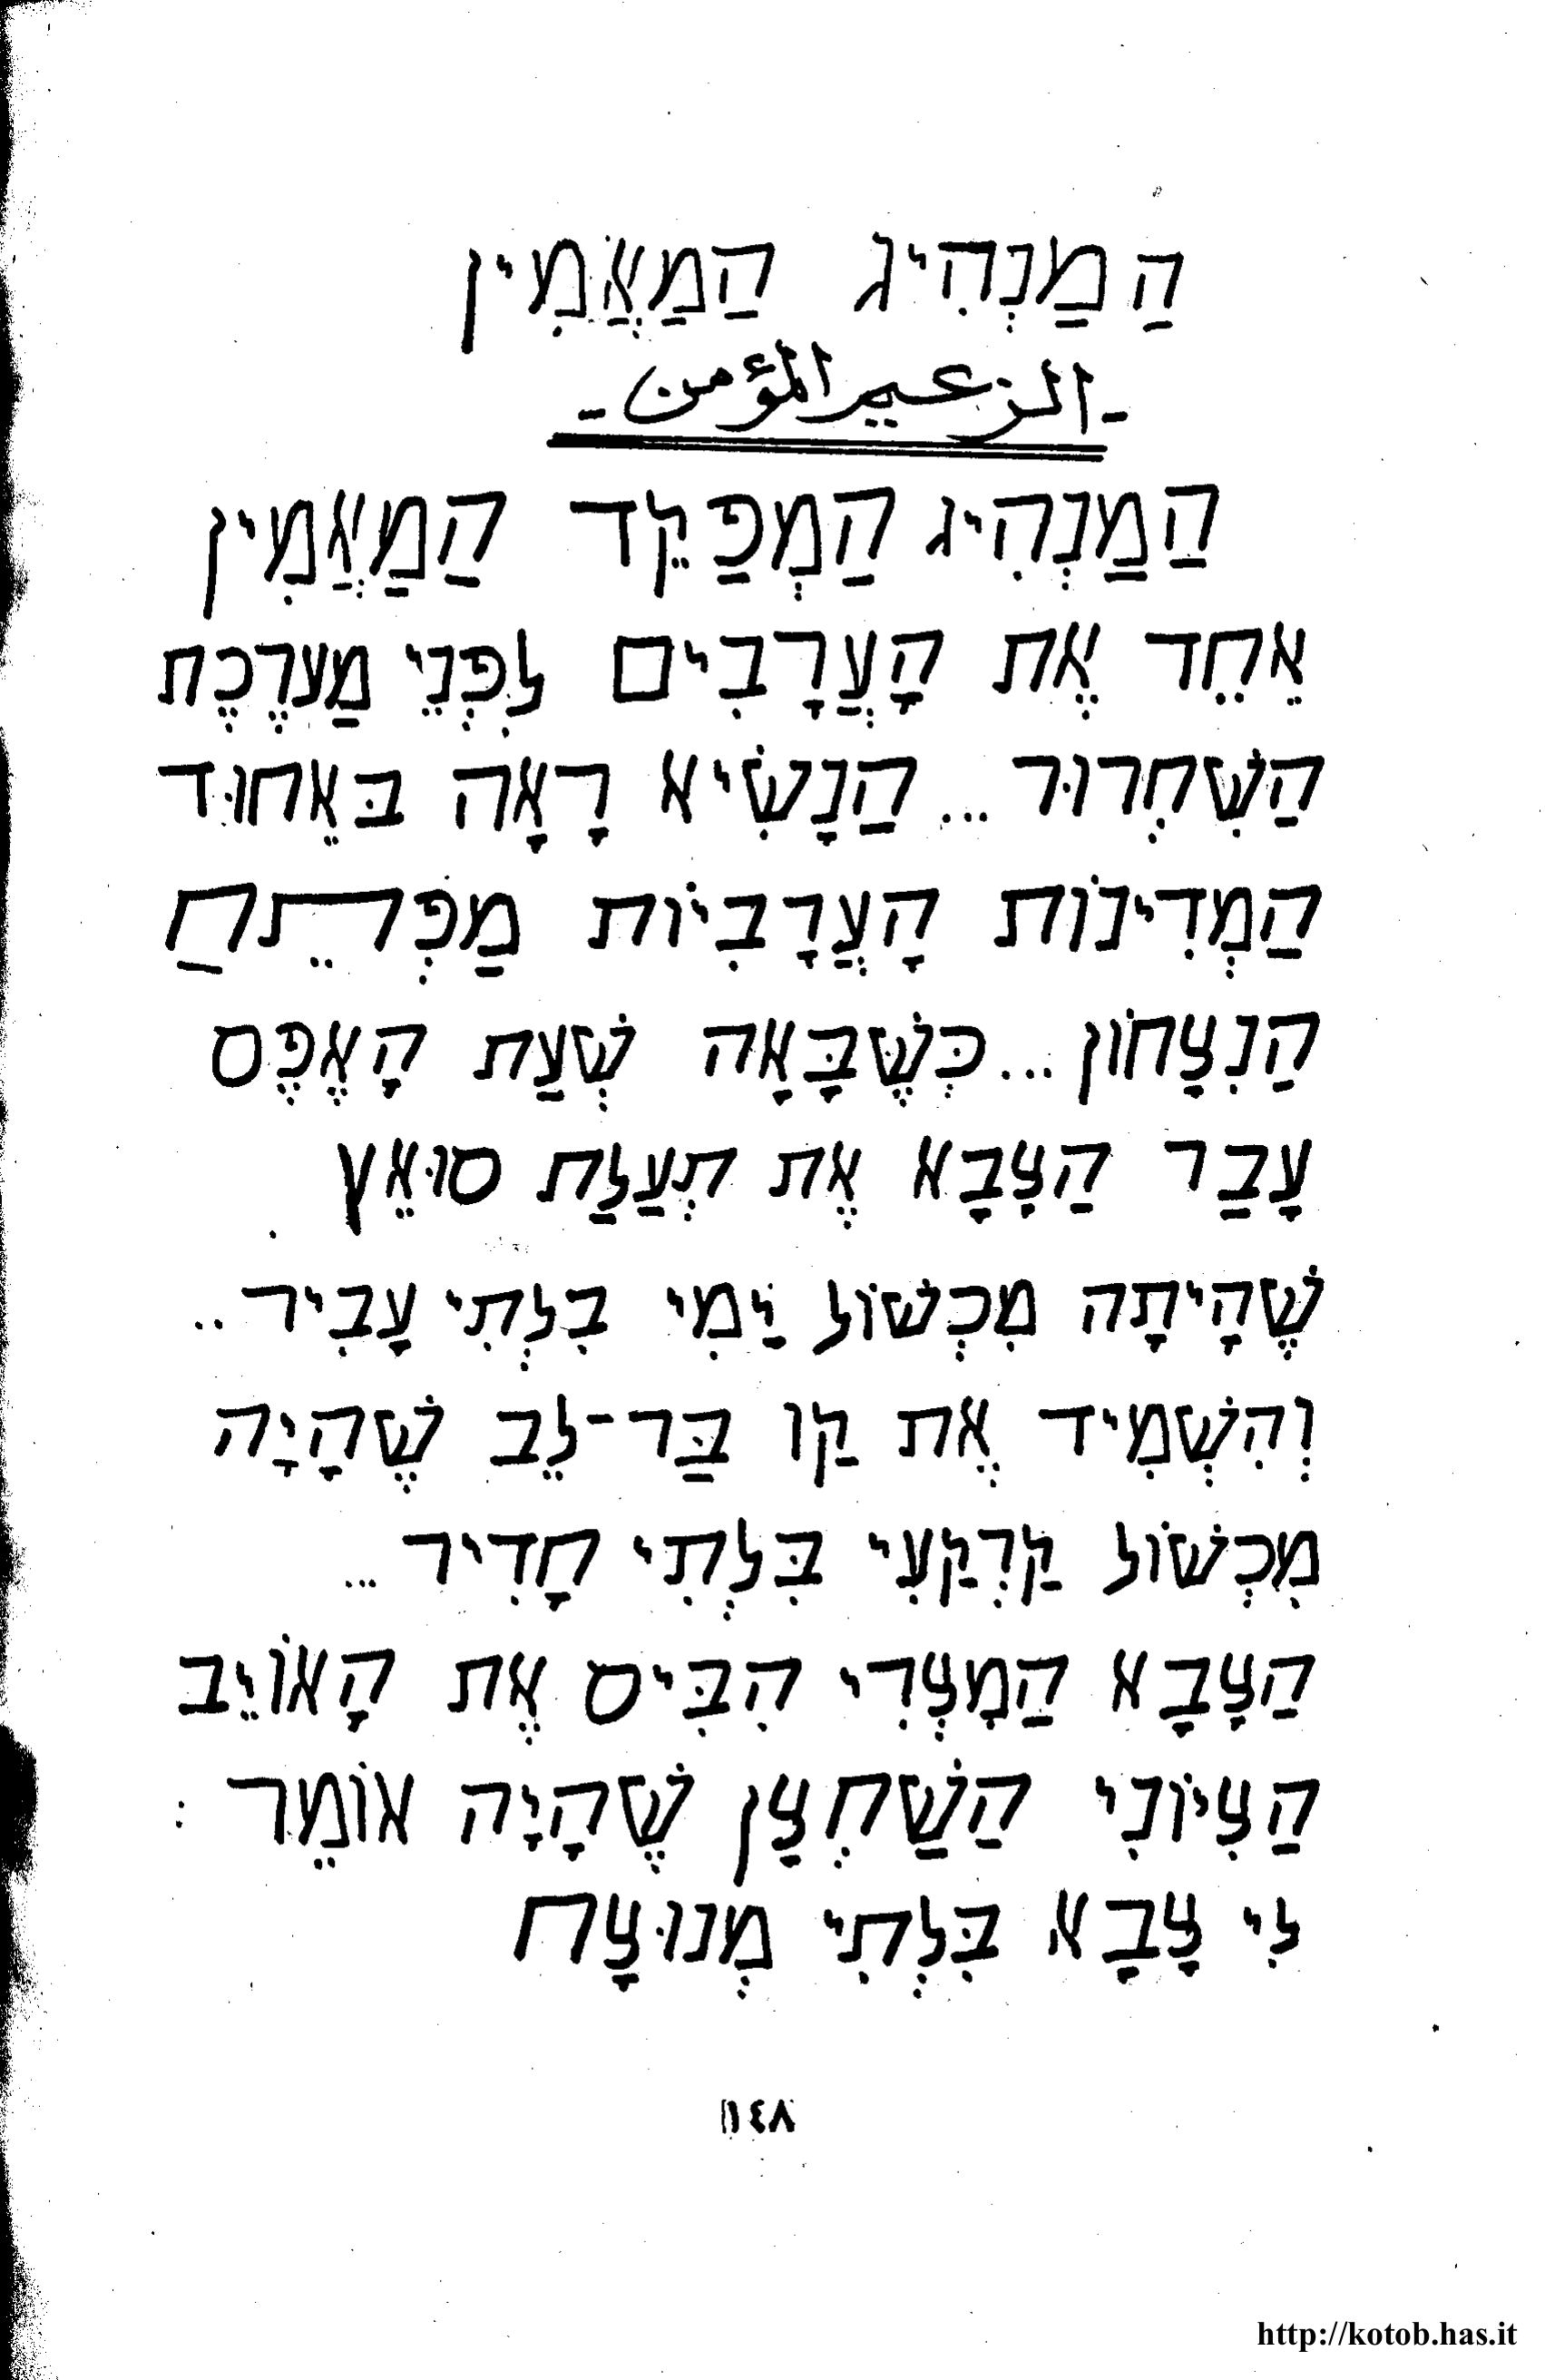 הַמַנְהִיג הַמַאֲמִין
-الزعيم المؤمن-
הַמַנְהִיג הַמְפַקֵד הַמַאֲמִין
אִֵחֵד אֶת הָעֲרָבִים לִפְנֵי מַעֶרֶכֶת
הַשִׁחְרוּר ... הַנָשִׂיא רָאָה בּאֵחוּד
הַמְדִינוֹת הָעֲרָבִיוֹת מַפְתֵחַ
הַנִצָחוֹן ... כְּשֶׁבָּאָה שְׁעַת הָאֶפֶס
עָבַר הַצָבָא אֶת תְעַלַת סוּאֵץ
שֶׁהָיתָה מִכְשׁוֹל יַמִי בִלְתִי עָבִיר ..
וְהִשְׁמִיד אֶת קַו בַּר-לֵב שֶׁהָיָה
מִכְשׁוֹל קַרְקַעִי בִּלְתִי חָדִיר ...
הַצָבָא הַמִצְרִי הִבִּיס אֶת הָאוֹיֵב
הַצִיוֹנִי הַשַׁחְצָן שֶׁהָיָה אוֹמֵר :
לִי צָבָא בִּלְתִי מְנוּצָח
١٤٨
http://kotob.has.it